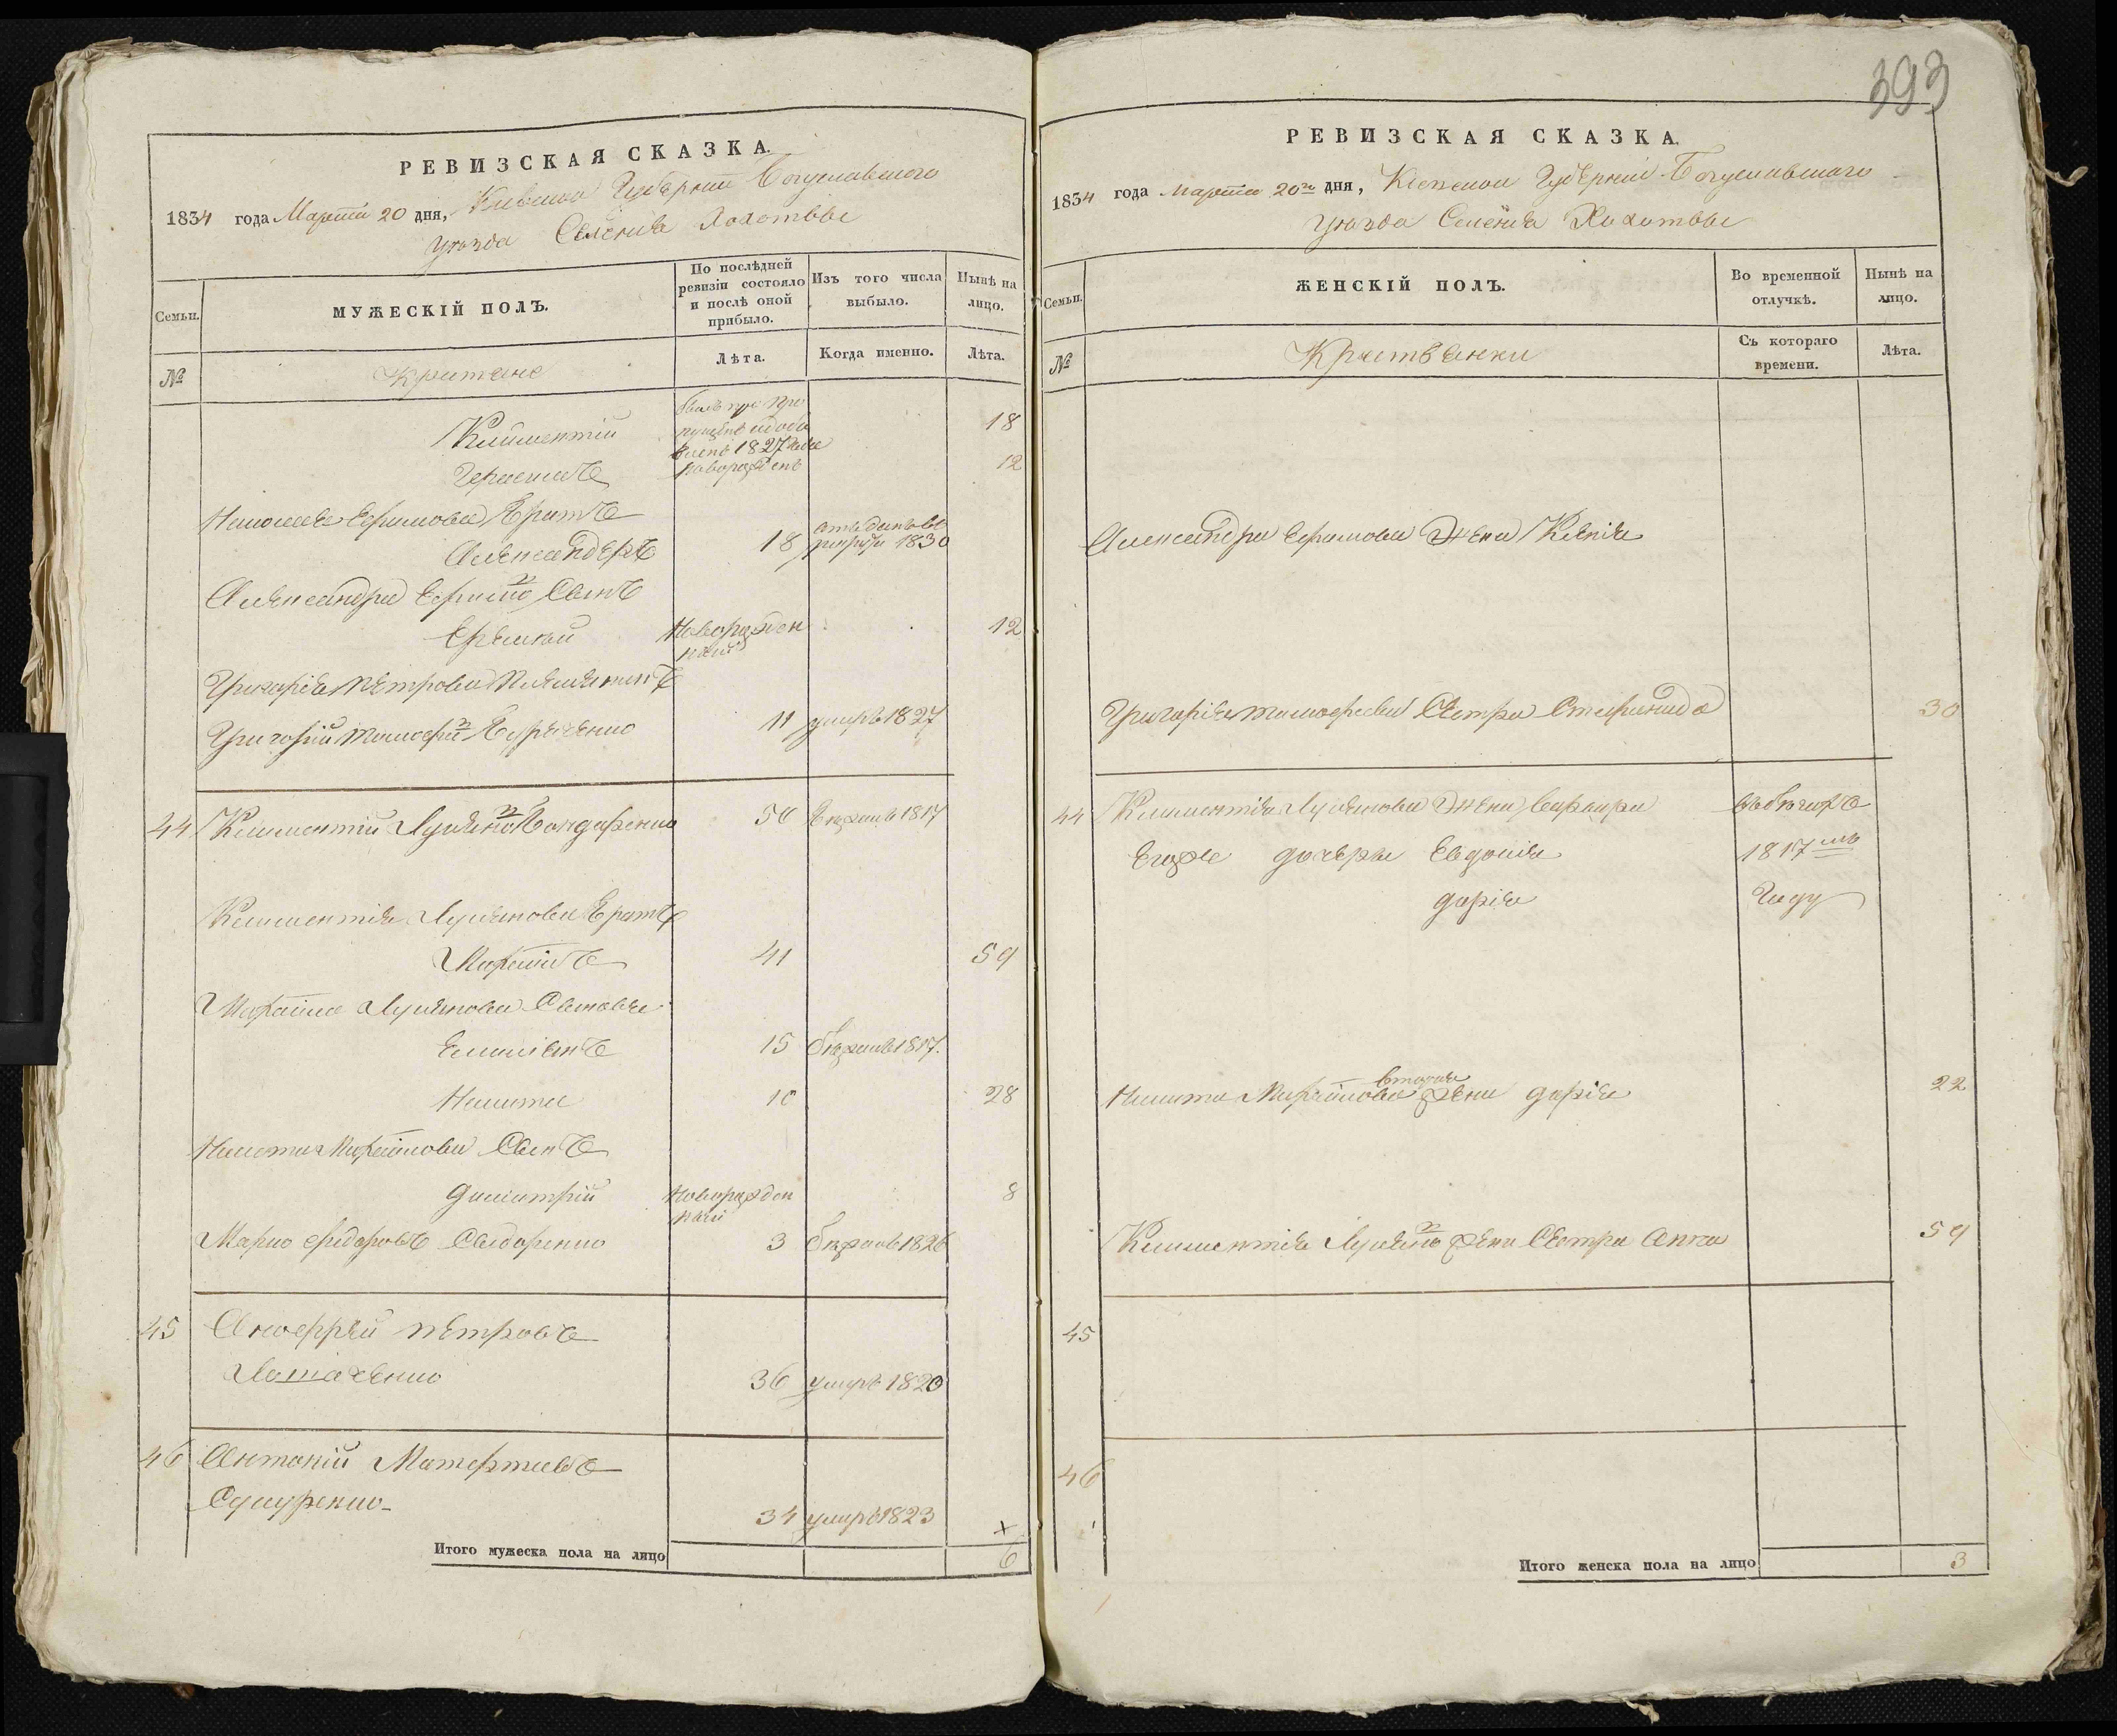 РЕВИЗСКАЯ СКАЗКА.
1834 года Марта 20 дня, Киевской Губернии Богуславского
уезда Селения Хохотвы
Семьи.
МУЖЕСКІЙ ПОЛЪ.
По послѣдней ревизіи состояло и послѣ оной прибыло.
Изъ того числа выбыло.
Нынѣ на лицо.
№
Лѣта.
Когда именно.
Лѣта.
Климентій 1827 18
Герасимъ новорожденъ 12
Ефимова Братъ
Александеръ 18 отданъ въ рекруты 1830
Александра Ефимо Сынъ
Еремей Новорожденный 12
Григорія Петрова Племянникъ
Григорій Тимофе 11 умръ 1827
44 Климентій Лукяно Бондаренко 56 бежалъ 1817
Климентія Лукянова Братъ
Мартинъ 41 59
Мартина Лукянова Сыновья
Емаліянъ 15 бежалъ 1817.
Никита 10 28
Никиты Мартинова Сынъ
Димитрій Новорожденный 8
Марко Федоровъ Сидоренко 3 бежалъ 1826
45 Андрей Петровъ
36 умръ 1820
46 Антоній
34 умръ 1823
х
Итого мужеска пола на лицо 6
393
РЕВИЗСКАЯ СКАЗКА.
1834 года Марта 20го дня, Киевской Губерніи Богуславского
уезда Селения Хохотвы
Семьи.
ЖЕНСКІЙ ПОЛЪ.
Во временной отлучкѣ.
Нынѣ на лицо.
№
Съ котораго времени.
Лѣта.
Александра Ефимова Жена Ксенія
Григорія Тимофеева Сестра Стефанида 30
44 Климентія Лукянова Жена Варвара въ бегахъ
Егоже дочери Евдокія 1817мъ
Дарія Году
Никиты Мартинова вторая жена Дарія 22
Климентія Лукяно жены Сестра Анна 59
45
46
Итого женска пола на лицо 3